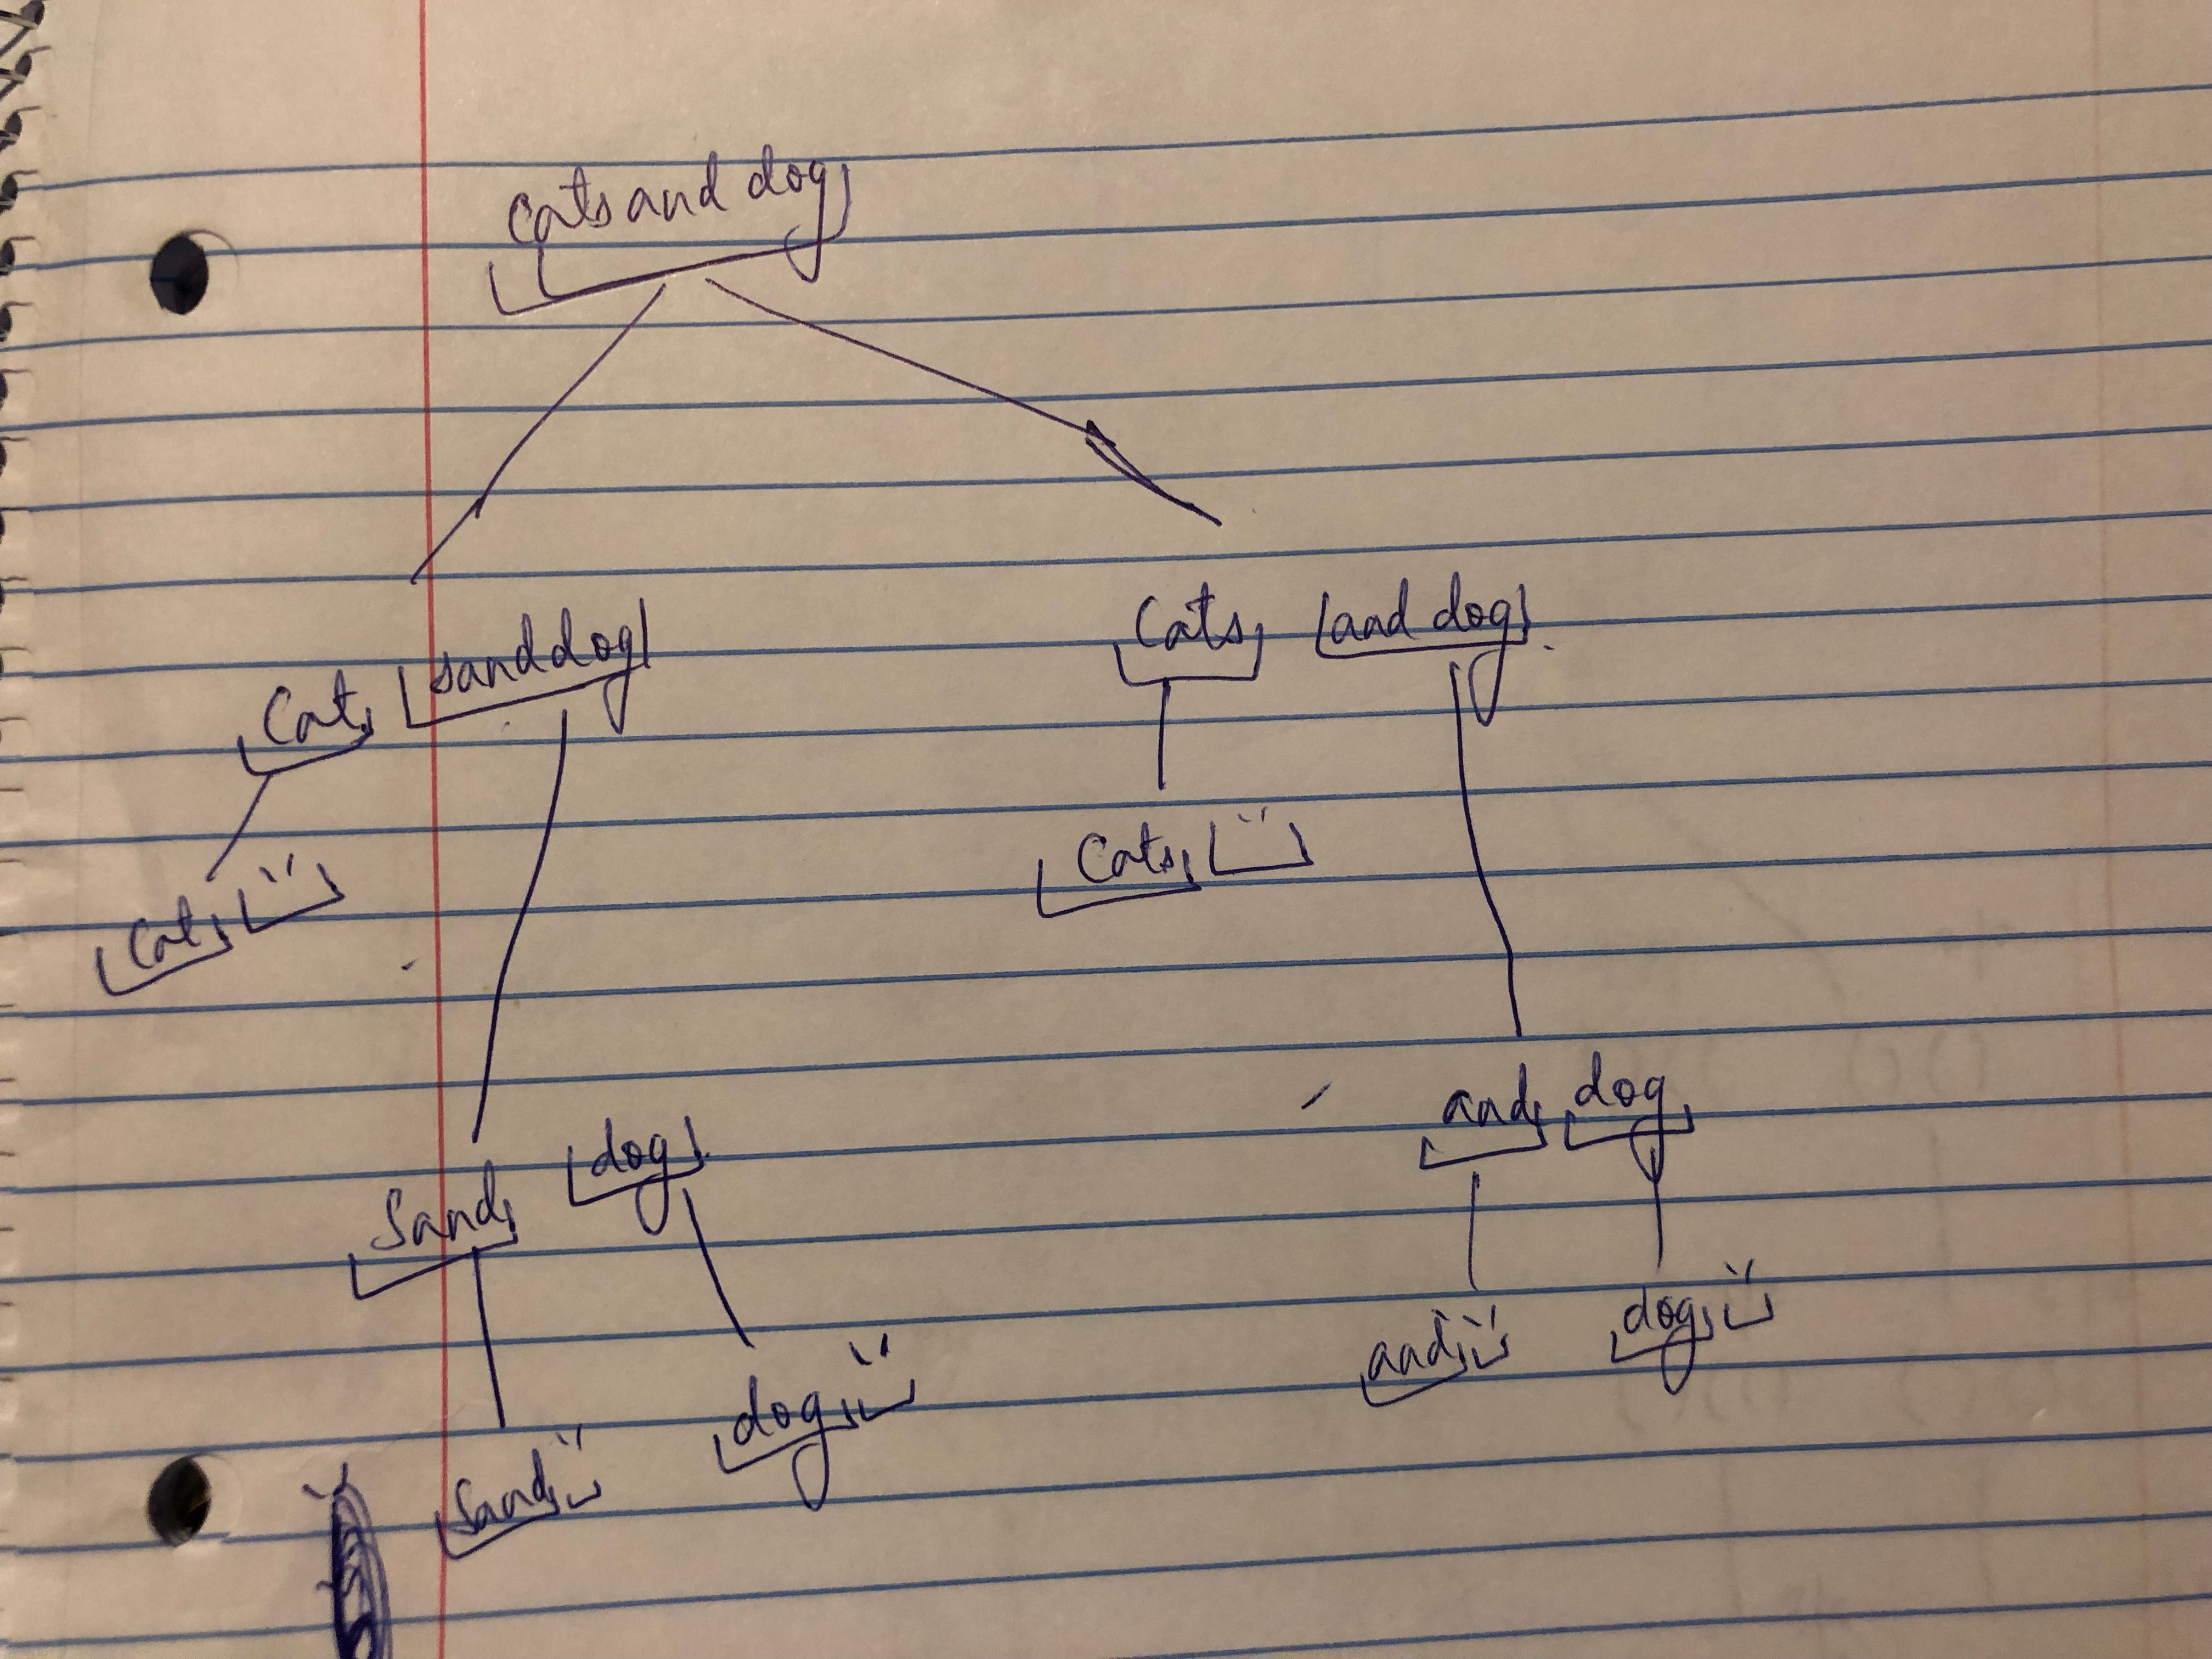 Cats and dog
Cat sanddog Cats and dog
Cat '' Cats ''
Sand dog and dog
Sand '' dog '' and '' dog ''